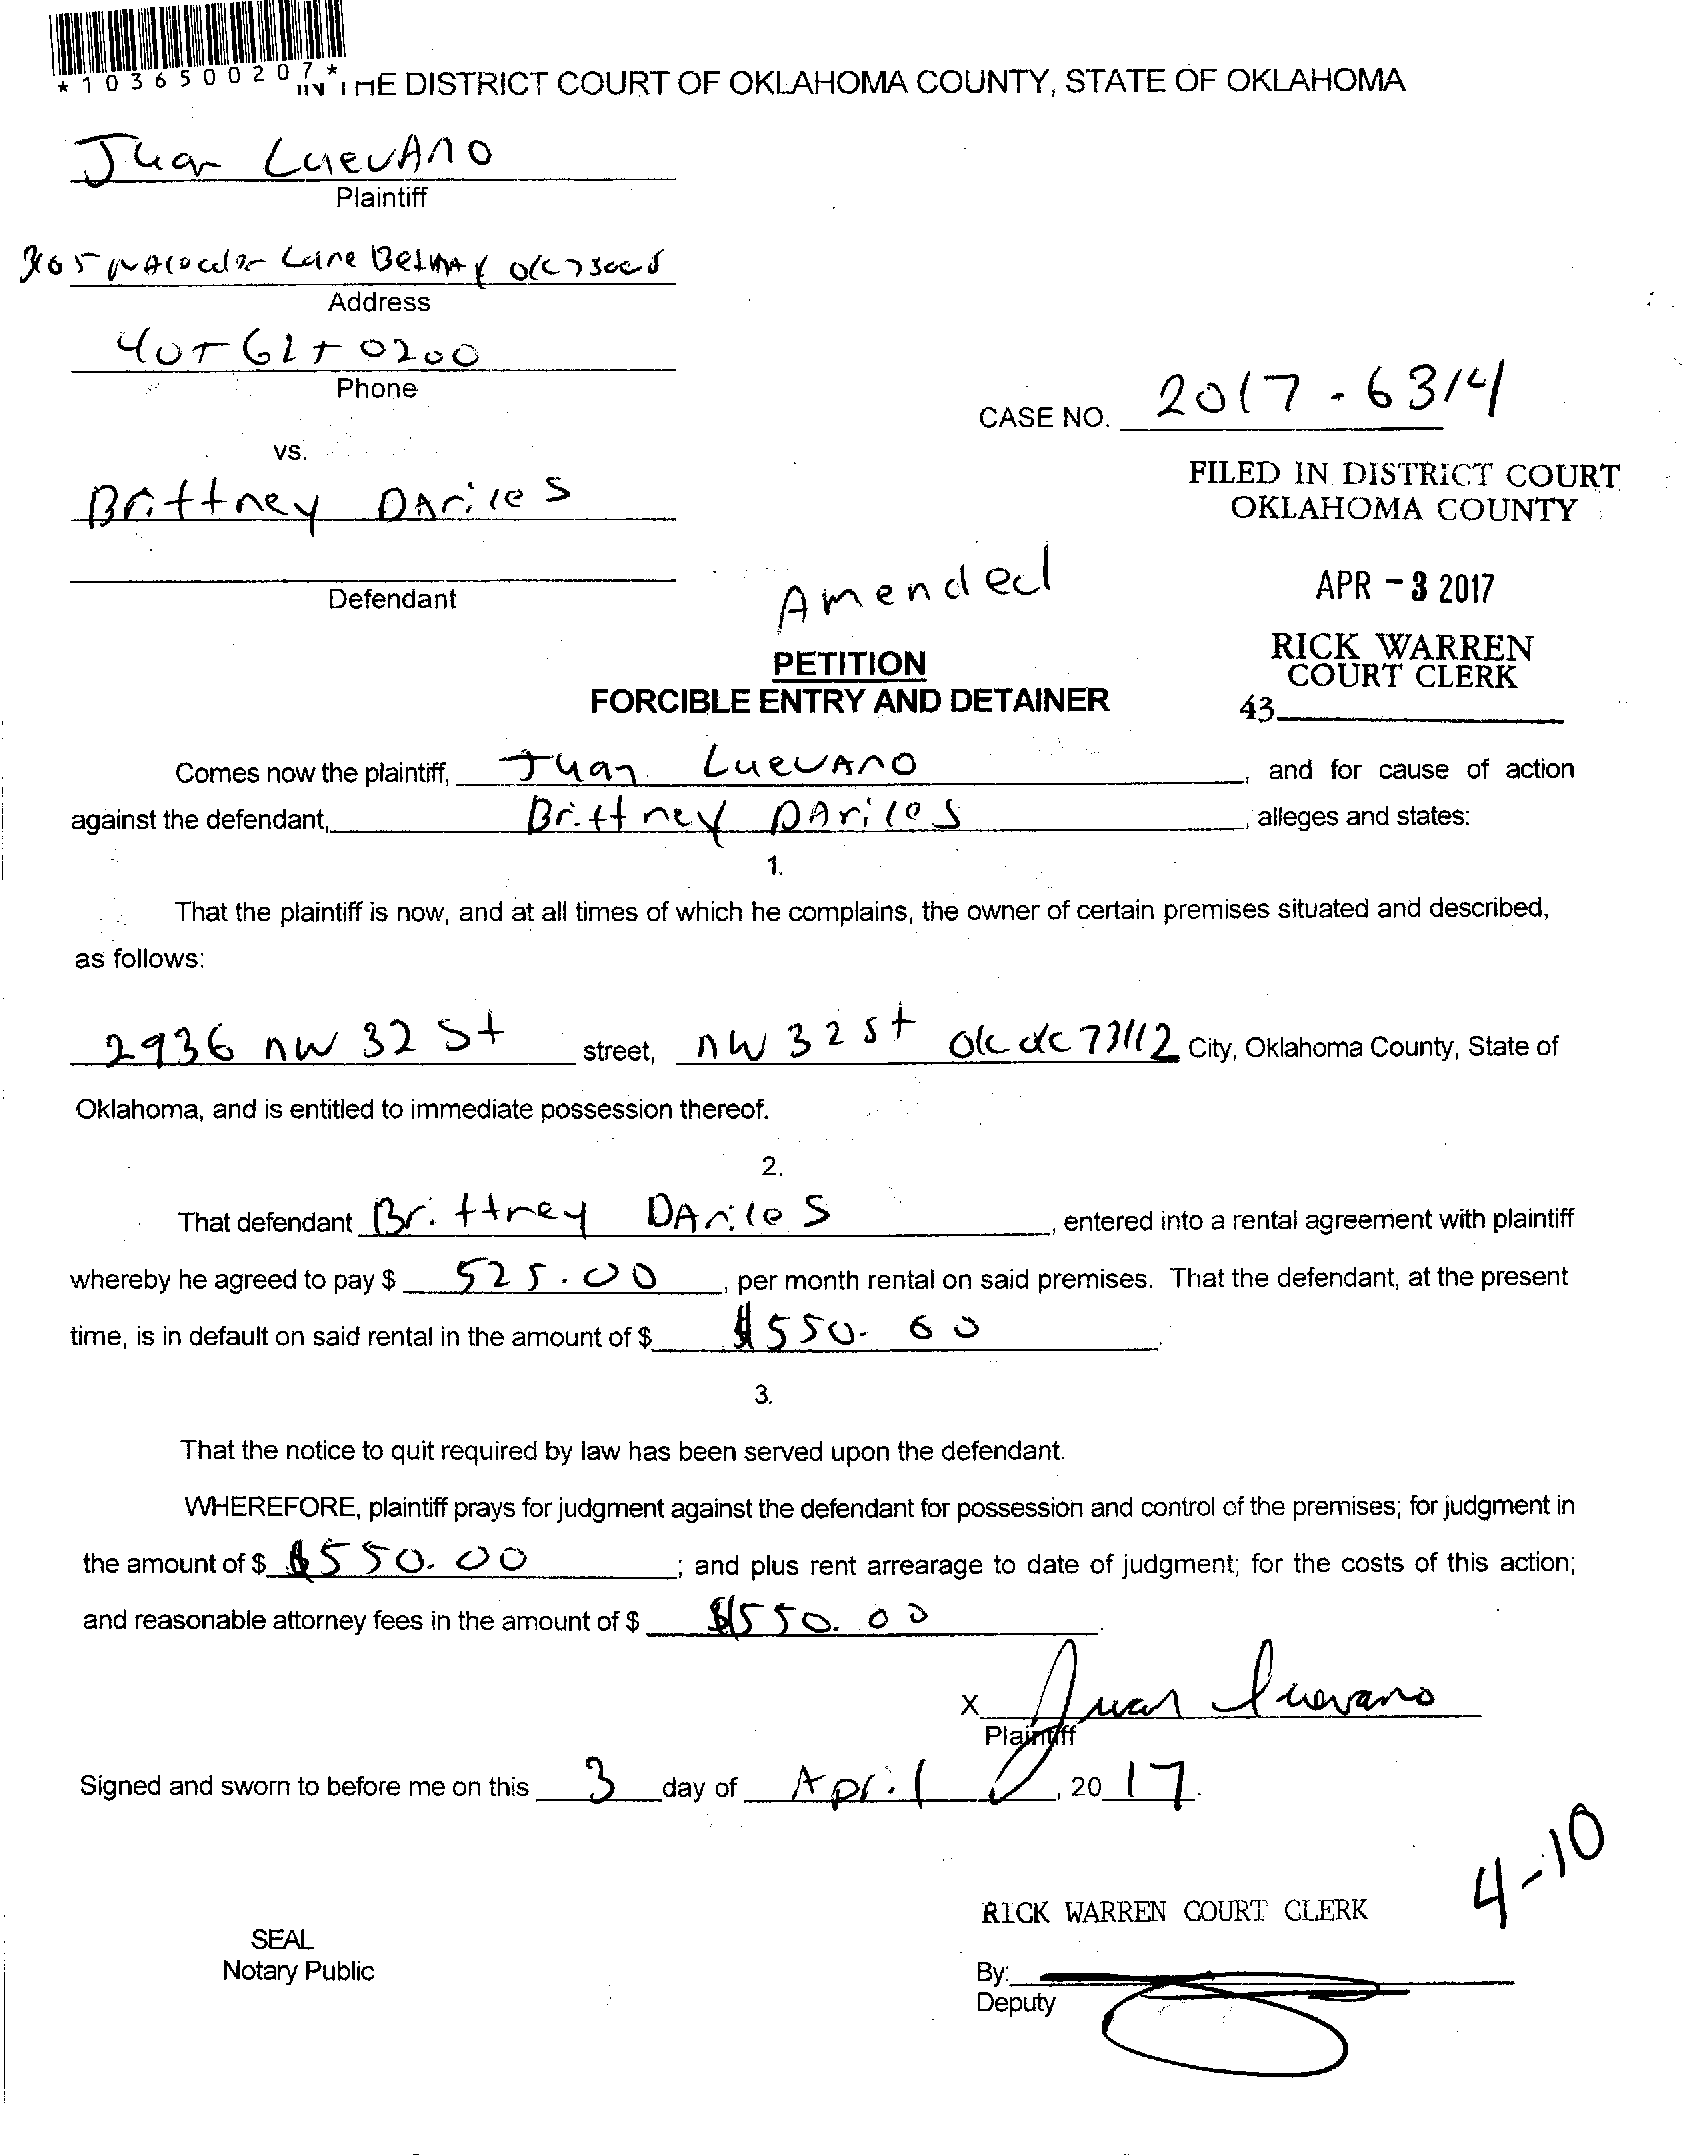 *1036500207*
IN THE DISTRICT COURT OF OKLAHOMA COUNTY, STATE OF OKLAHOMA
Juan Luevano
Plaintiff
Lane
Address
405 0200
Phone
CASE NO. 2017-6314
vs.
FILED IN DISTRICT COURT
OKLAHOMA COUNTY
Brittney Dariles
APR -3 2017
Defendant
Amended
RICK WARREN
COURT CLERK
43
PETITION
FORCIBLE ENTRY AND DETAINER
Comes now the plaintiff, Juan Luevano, and for cause of action
against the defendant, Brittney Dariles, alleges and states:
1.
That the plaintiff is now, and at all times of which he complains, the owner of certain premises situated and described,
as follows:
2936 nw 32 St street, nw 32 st 73112 City, Oklahoma County, State of
Oklahoma, and is entitled to immediate possession thereof.
2.
That defendant Brittney Dariles, entered into a rental agreement with plaintiff
whereby he agreed to pay $ 525.00, per month rental on said premises. That the defendant, at the present
time, is in default on said rental in the amount of $ $550.00.
3.
That the notice to quit required by law has been served upon the defendant.
WHEREFORE, plaintiff prays for judgment against the defendant for possession and control of the premises; for judgment in
the amount of $ $550.00; and plus rent arrearage to date of judgment; for the costs of this action;
and reasonable attorney fees in the amount of $ $550.00.
X Juan Luevano
Plaintiff
Signed and sworn to before me on this 3 day of April, 2017.
4-10
RICK WARREN COURT CLERK
SEAL
Notary Public
By:
Deputy